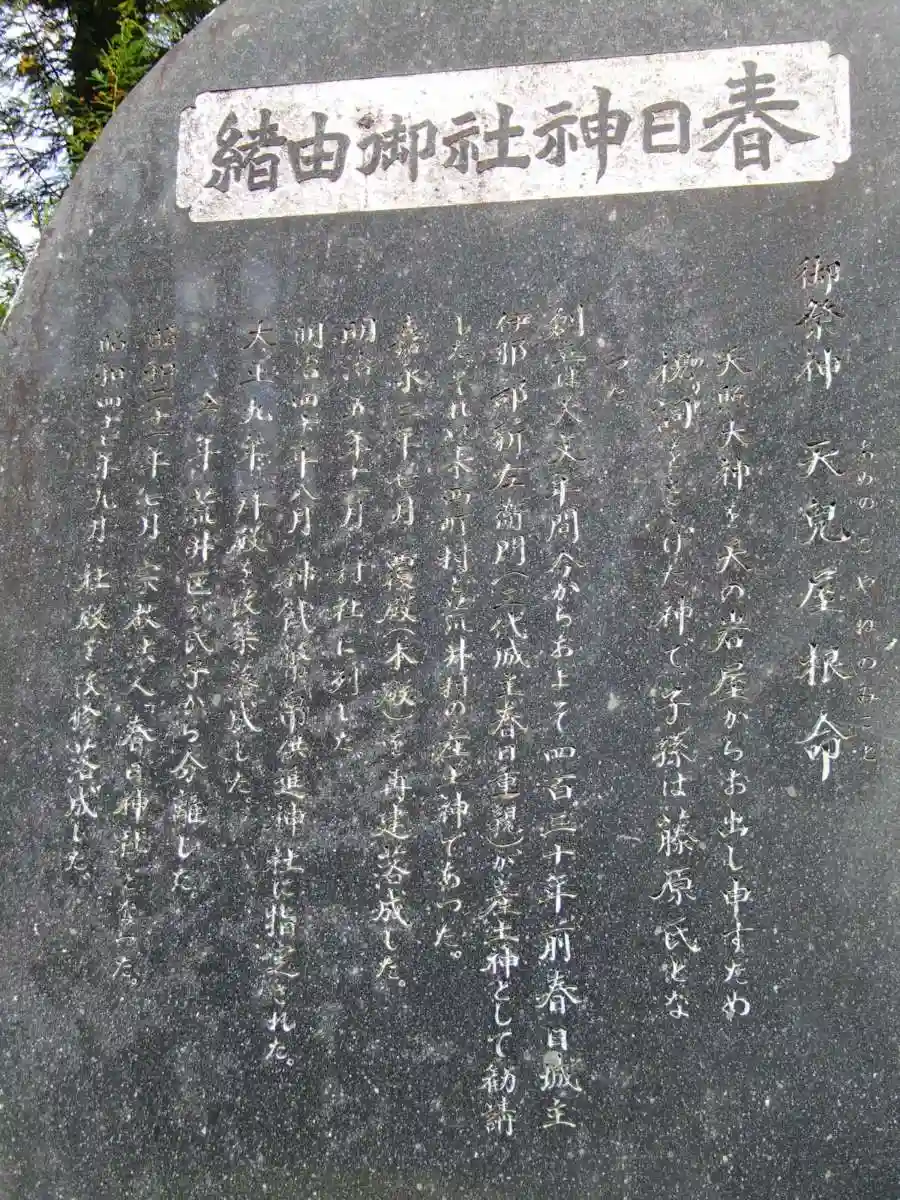 春日神社御由緒
御祭神 天児屋根命
あめのこやねのみこと
天照大神を天の岩屋からお出し申すため
祝詞をとげた神で、子孫は藤原氏とな
のりと
つた
創立は天文年間今からおよそ四百三十年前春日城主
伊那部新左衛門(三代城主春日重親)が産土神として勧請
した。それ以来西町村と荒井村の産土神であつた。
嘉永二年七月 覆殿(本殿)を再建落成した。
明治五年十一月 村社に列した。
明治四十年八月 神饌幣帛供進神社に指定された。
大正九年 拝殿を改築落成した。
仝 年 荒井区が氏子から分離した。
昭和二十一年七月 宗教法人「春日神社」となつた。
昭和四十七年九月 社殿を改修落成した。